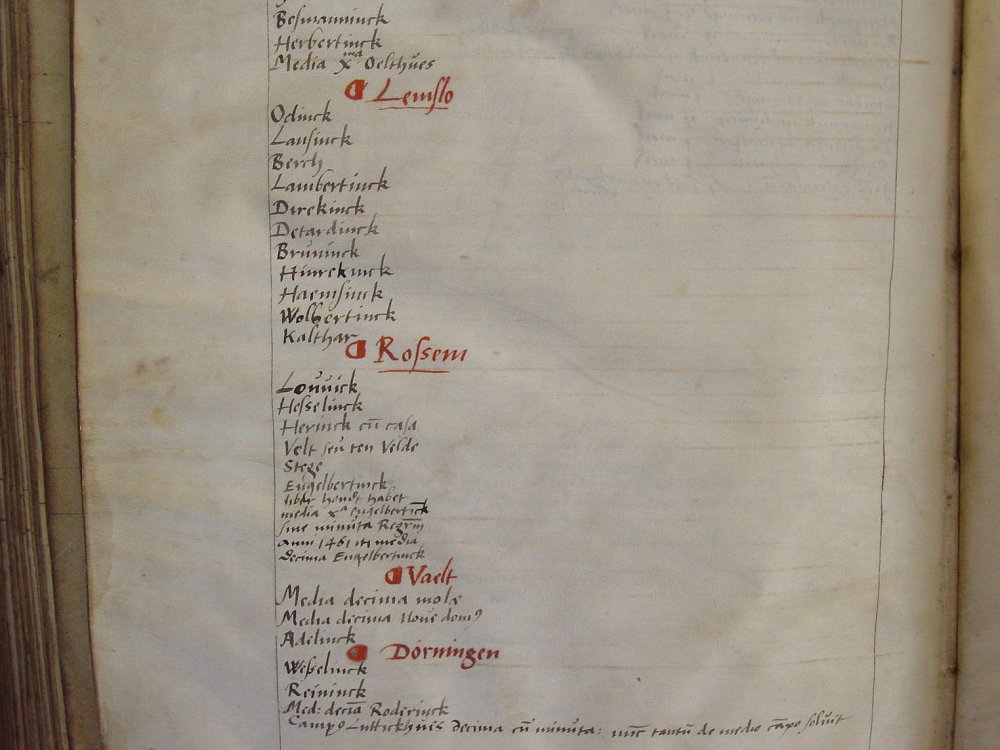 Besmanninck
Herbertinck
Media xma Oelthůes
Lemslo
Odinck
Lansinck
Berch
Lambertinck
Direkinck
Detardinck
Brůninck
Hinrekinck
Haemsinck
Wolbertinck
Kalthar
Rossem
Loůůick
Hesselinck
Herinck cū casa
Velt seů ten Velde
Stege
Engelbertinck
habet
media xa engelbertīck
sine minůta Regrm̄
anni 1461 in media
decima Engelbertinck
Vaelt
Media decima molæ
Media decima noůe domꝰ
Adelinck
Dorningen
Wesselinck
Reininck
Med: decīa Roderinck
Campꝰ Luttickhůes decima cū minůta: nūc tantū de medio cāpo solůit